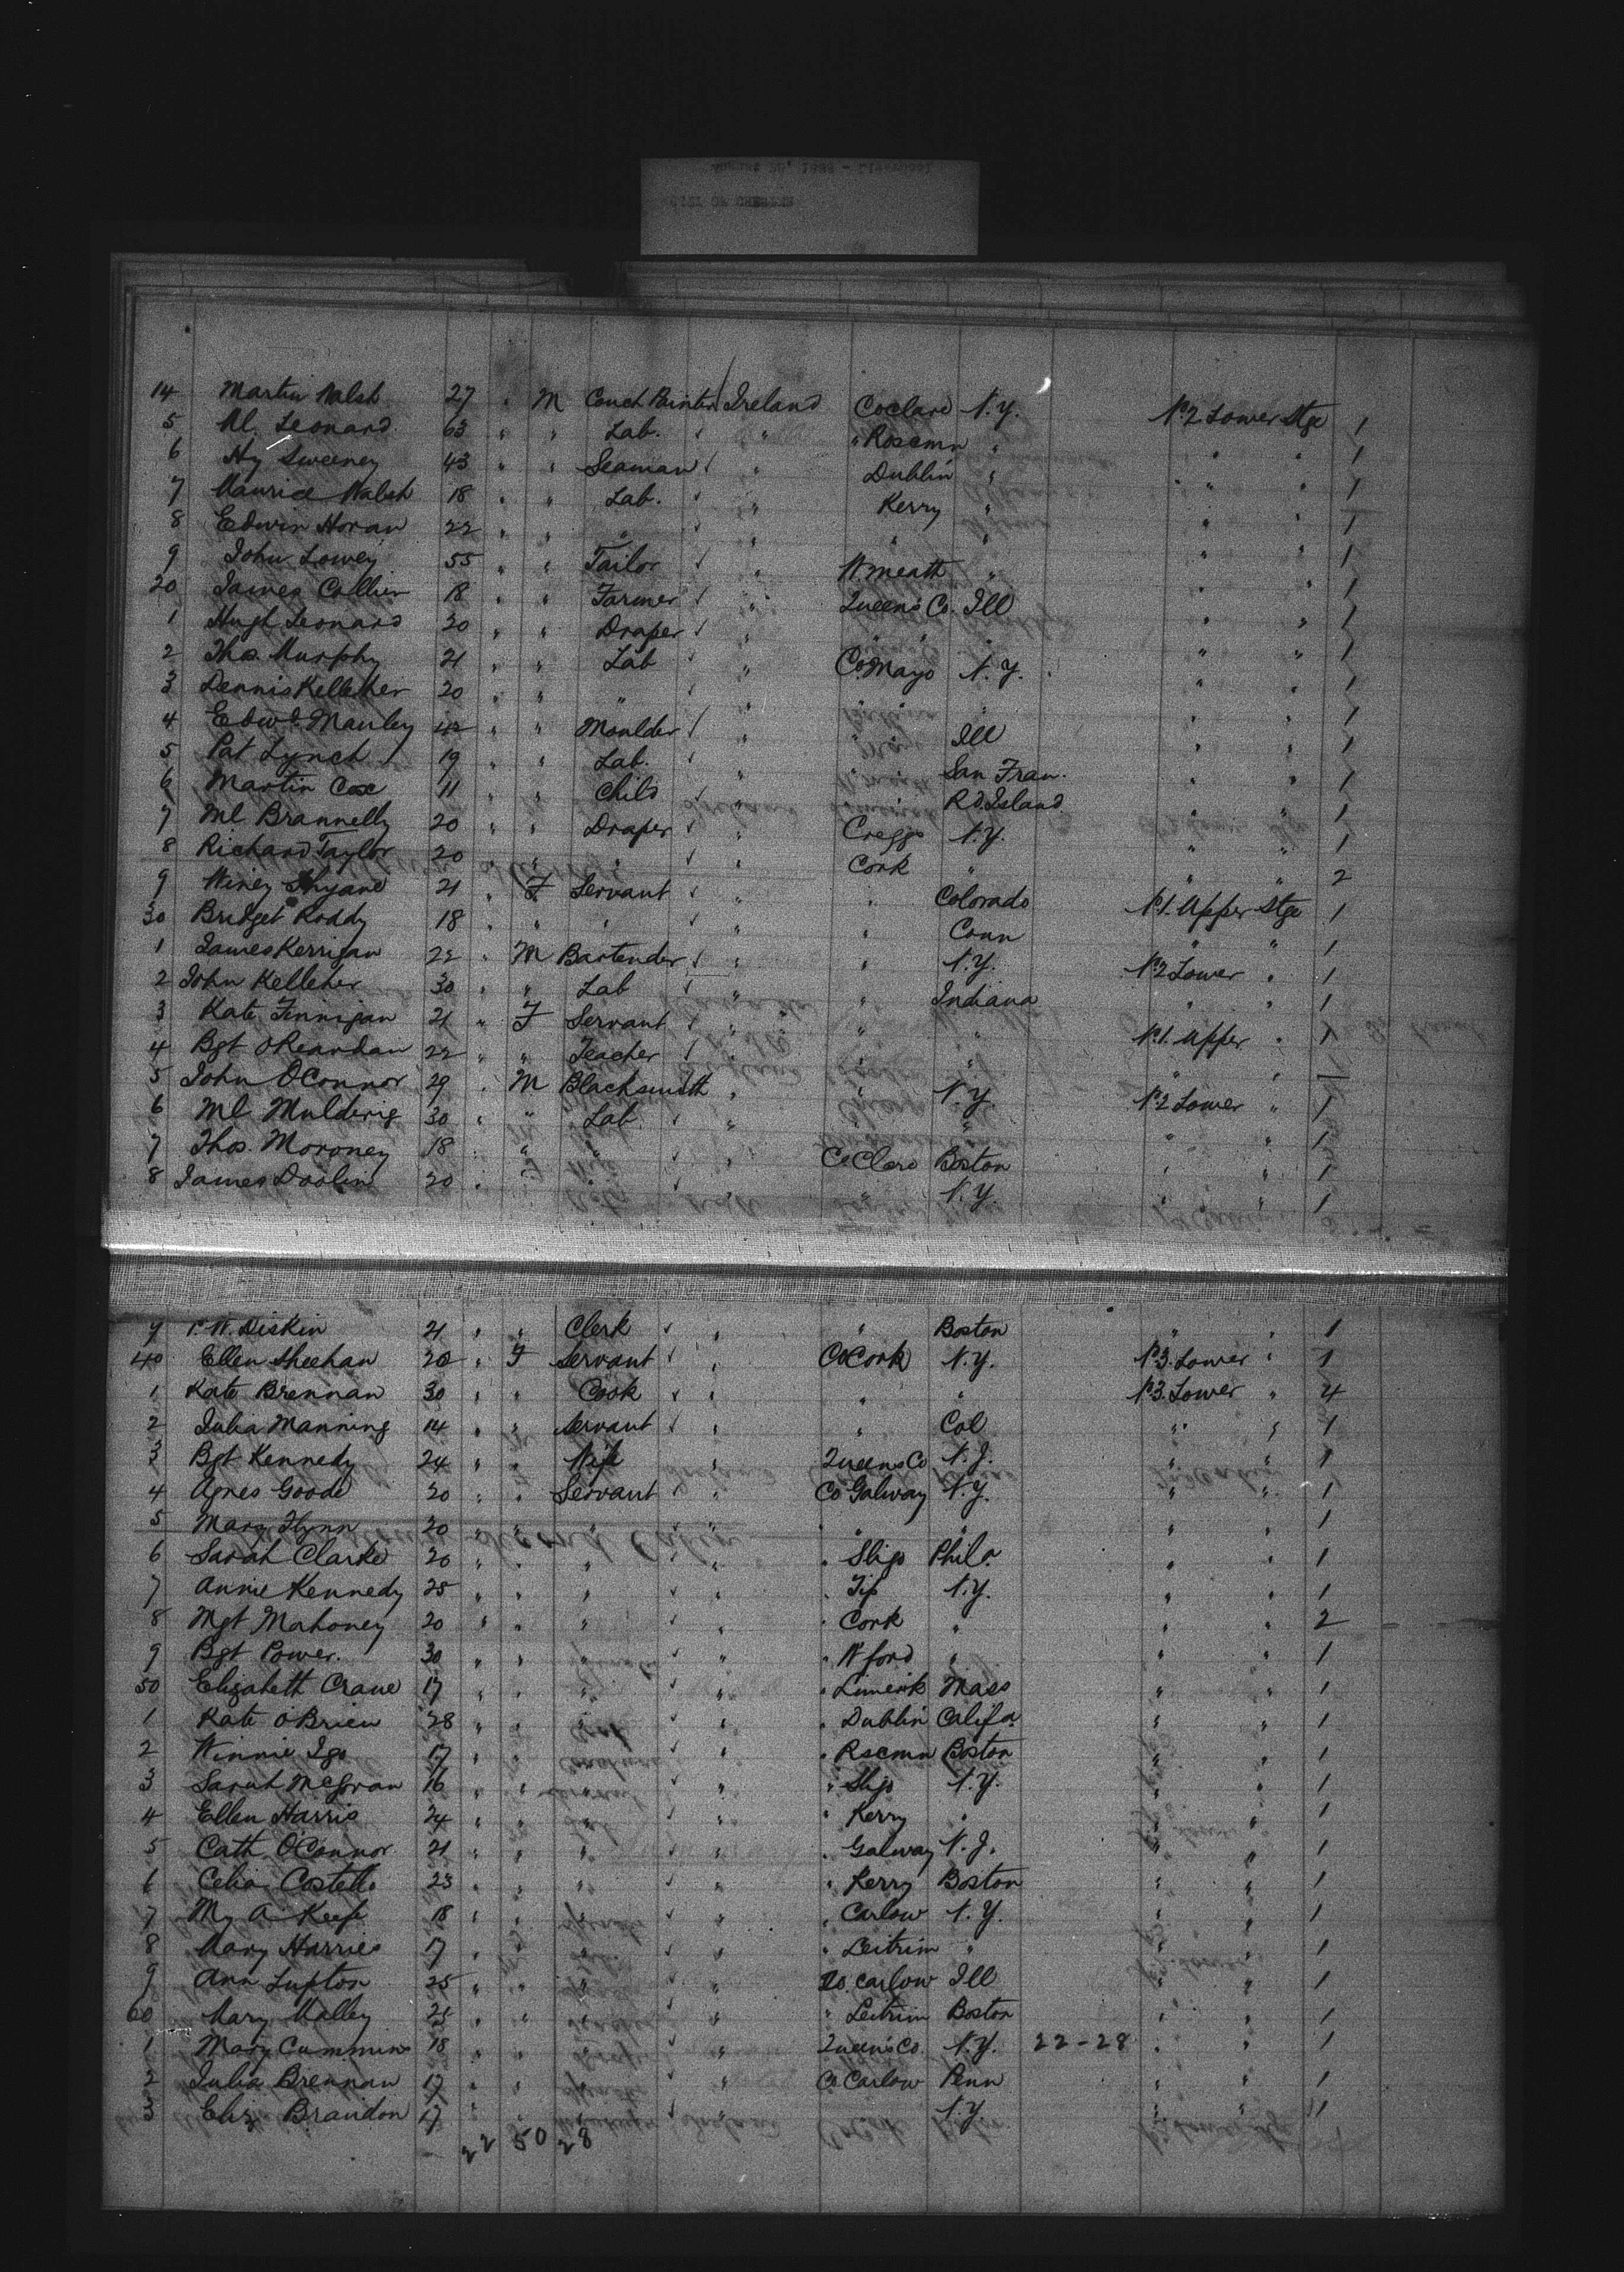 CITY OF CHESTER
14 Martin Walsh 27 " M Coach Painter Ireland Co Clare N.Y. No 2 Lower Stge 1
5 Ml. Leonard 63 " " Lab. " " Roscmn " " " 1
6 Hy Sweeney 43 " " Seaman " Dublin " " " 1
7 Maurice Walsh 18 " " Lab. " Kerry " " " 1
8 Edwin Horan 22 " " " " " " " " 1
9 John Lowey 55 " " Tailor " W. meath " " " 1
20 James Collier 18 " " Farmer " Queens Co. Ill " " 1
1 Hugh Leonard 20 " " Draper " " " " " 1
2 Thos. Murphy 21 " " Lab " Co. Mayo N.Y. " " 1
3 Dennis Kelleher 20 " " " " " " " " 1
4 Edwd. Manley 42 " " Moulder " " Ill " " 1
5 Pat Lynch 19 " " Lab. " " San Fran. " " 1
6 Martin Cox 11 " " Child " " Rd. Island " " 1
7 Ml Brannelly 20 " " Draper " Creggs N.Y. " " 1
8 Richard Taylor 20 " " " " Cork " " " 2
9 Winey 21 " F Servant " " Colorado No 1. Upper Stge 1
30 Bridget Roddy 18 " " " " " Conn " " 1
1 James Kerrigan 22 " M Bartender " " N.Y. No 2 Lower " 1
2 John Kelleher 30 " " Lab " " Indiana " " 1
3 Kate Finnigan 21 " F Servant " " " No 1. Upper " 1
4 Bgt O'Reardan 22 " " Teacher " " " " " 1
5 John O'Connor 29 " M Blacksmith " " N.Y. No 2 Lower " 1
6 Ml Mulderig 30 " " Lab. " " " " " 1
7 Thos. Moroney 18 " " " " Co Clare Boston " " 1
8 James Doolin 20 " " " " " N.Y. " " 1
9 P. W. Diskin 21 " " Clerk " " Boston " " 1
40 Ellen Sheehan 20 " F Servant " Co Cork N.Y. No 3. Lower " 1
1 Kate Brennan 30 " " Cook " " " No 3. Lower " 4
2 Julia Manning 14 " " Servant " " Col " " 1
3 Bgt Kennedy 24 " " Wife " Queens Co N.J. " " 1
4 Agnes Goode 20 " " Servant " Co Galway N.Y. " " 1
5 Mary Flynn 20 " " " " " " " " 1
6 Sarah Clarke 20 " " " " " Sligo Phila. " " 1
7 Annie Kennedy 25 " " " " " Tip N.Y. " " 1
8 Mgt Mahoney 20 " " " " " Cork " " " 2
9 Bgt Power. 30 " " " " " W'ford " " " 1
50 Elizabeth Crane 17 " " " " " Limerik Mass " " 1
1 Kate O'Brien 28 " " " " " Dublin Califa. " " 1
2 Winnie Igo 17 " " " " " Rscmn Boston " " 1
3 Sarah McGowan 16 " " " " " Sligo N.Y. " " 1
4 Ellen Harris 24 " " " " " Kerry " " " 1
5 Cath O'Connor 21 " " " " " Galway N.J. " " 1
6 Celia Costello 23 " " " " " Kerry Boston " " 1
7 My A Keefe 18 " " " " " Carlow N.Y. " " 1
8 Mary Harries 17 " " " " " Leitrim " " " 1
9 Ann Lupton 25 " " " " Co. Carlow Ill " " 1
60 Mary Malley 21 " " " " " Leitrim Boston " " 1
1 Mary Cummins 18 " " " " Queens Co. N.Y. 22-28 " " 1
2 Julia Brennan 17 " " " " Co Carlow Penn " " 1
3 Eliz. Brandon 17 " " " " " N.Y. " " 1
22 50 28